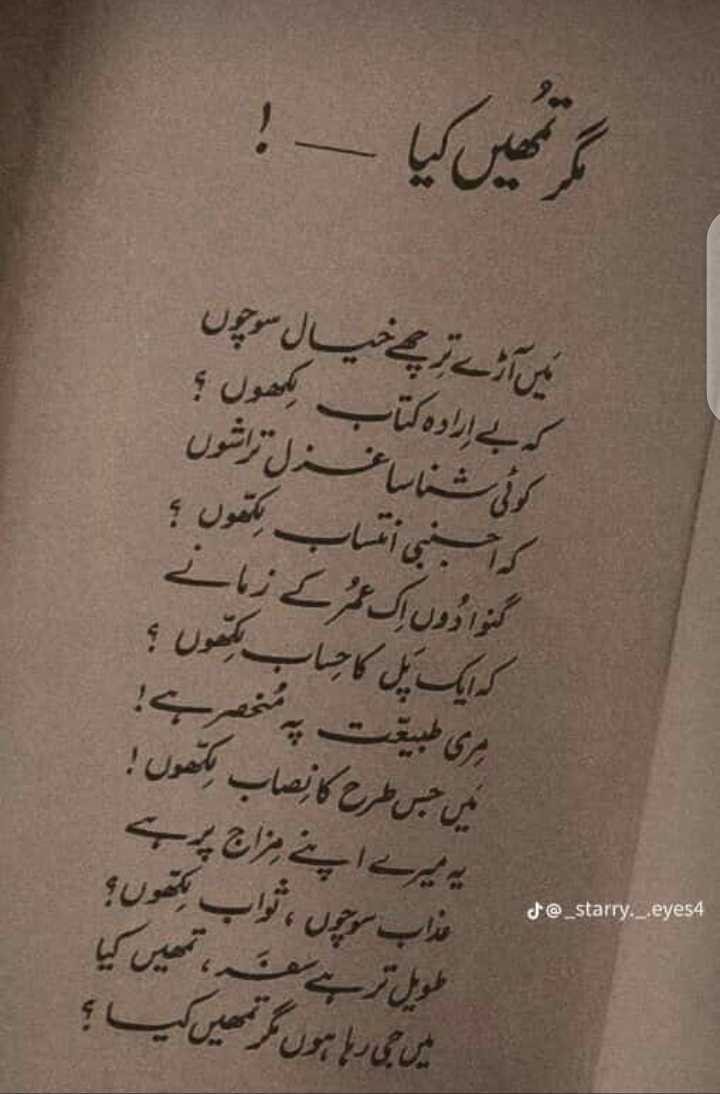 مگر تمُھیں کیا — !
مَیں آڑے تِرچھے خیال سوچوں
کہ بے اِرادہ کتاب لِکھوں ؟
کوئی شناسا غزل تراشوں
کہ اجنبی انتساب لِکھّوں ؟
گنوا دُوں اِک عُمر کے زمانے
کہ ایک پَل کا حِساب لِکھّوں ؟
مِری طبیعّت پہ مُنحصر ہے !
مَیں جس طرح کا نِصاب لِکھّوں !
یہ میرے اپنے مِزاج پر ہے
عذاب سوچوں ، ثواب لِکھّوں ؟
طویل تر ہے سفَر ، تمھیں کیا
میں جی رہا ہوں مگر تمھیں کیا ؟
@_starry._.eyes4